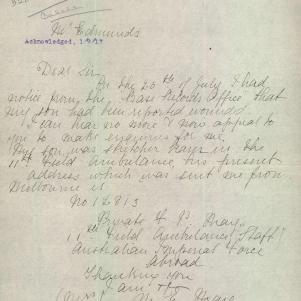 Mr Edmunds
Acknowledged, 1/9/17
Dear Sir
On the 25th of July I had
notice from the Base Records Office that
my son had been reported wounded
I can hear no more I now appeal to
you to make enquiries for me
My son was stretcher bearer in the
11th Field Ambulance, his present
address which was sent me from
Melbourne is
No 12813
Private
11th Field Ambulance Staff
Australian Imperial Force
Abroad
Thanking You
I am